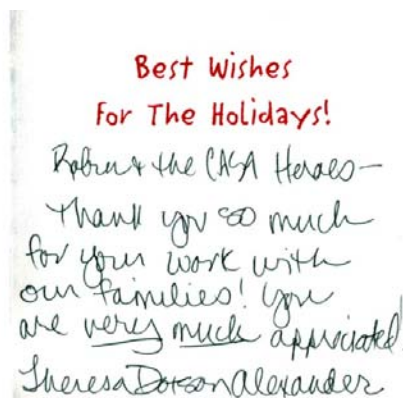 Best Wishes
For The Holidays!
Robin & the CASA Heroes-
Thank you so much
for your work with
our families! You
are very much appreciated
Theresa Dotson Alexander